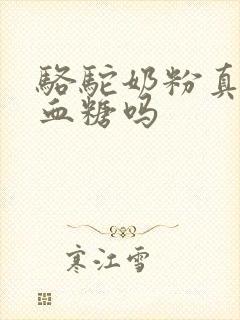 駱駝奶粉真
血糖吗
寒江雪